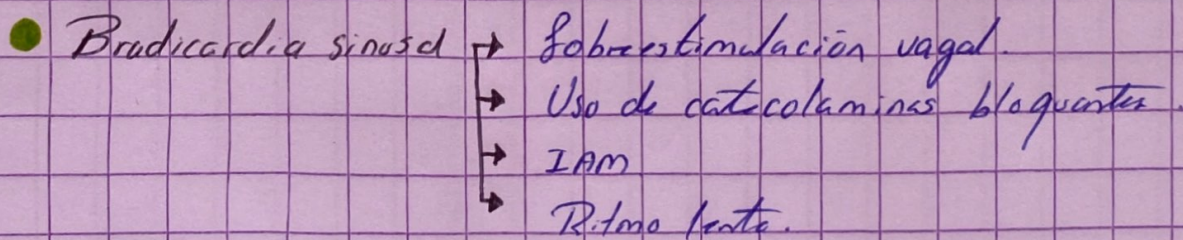 Bradicardia sinusal → Sobreestimulación vagal.
→ Uso de catecolaminas bloquantes.
→ IAM
→ Ritmo lento.